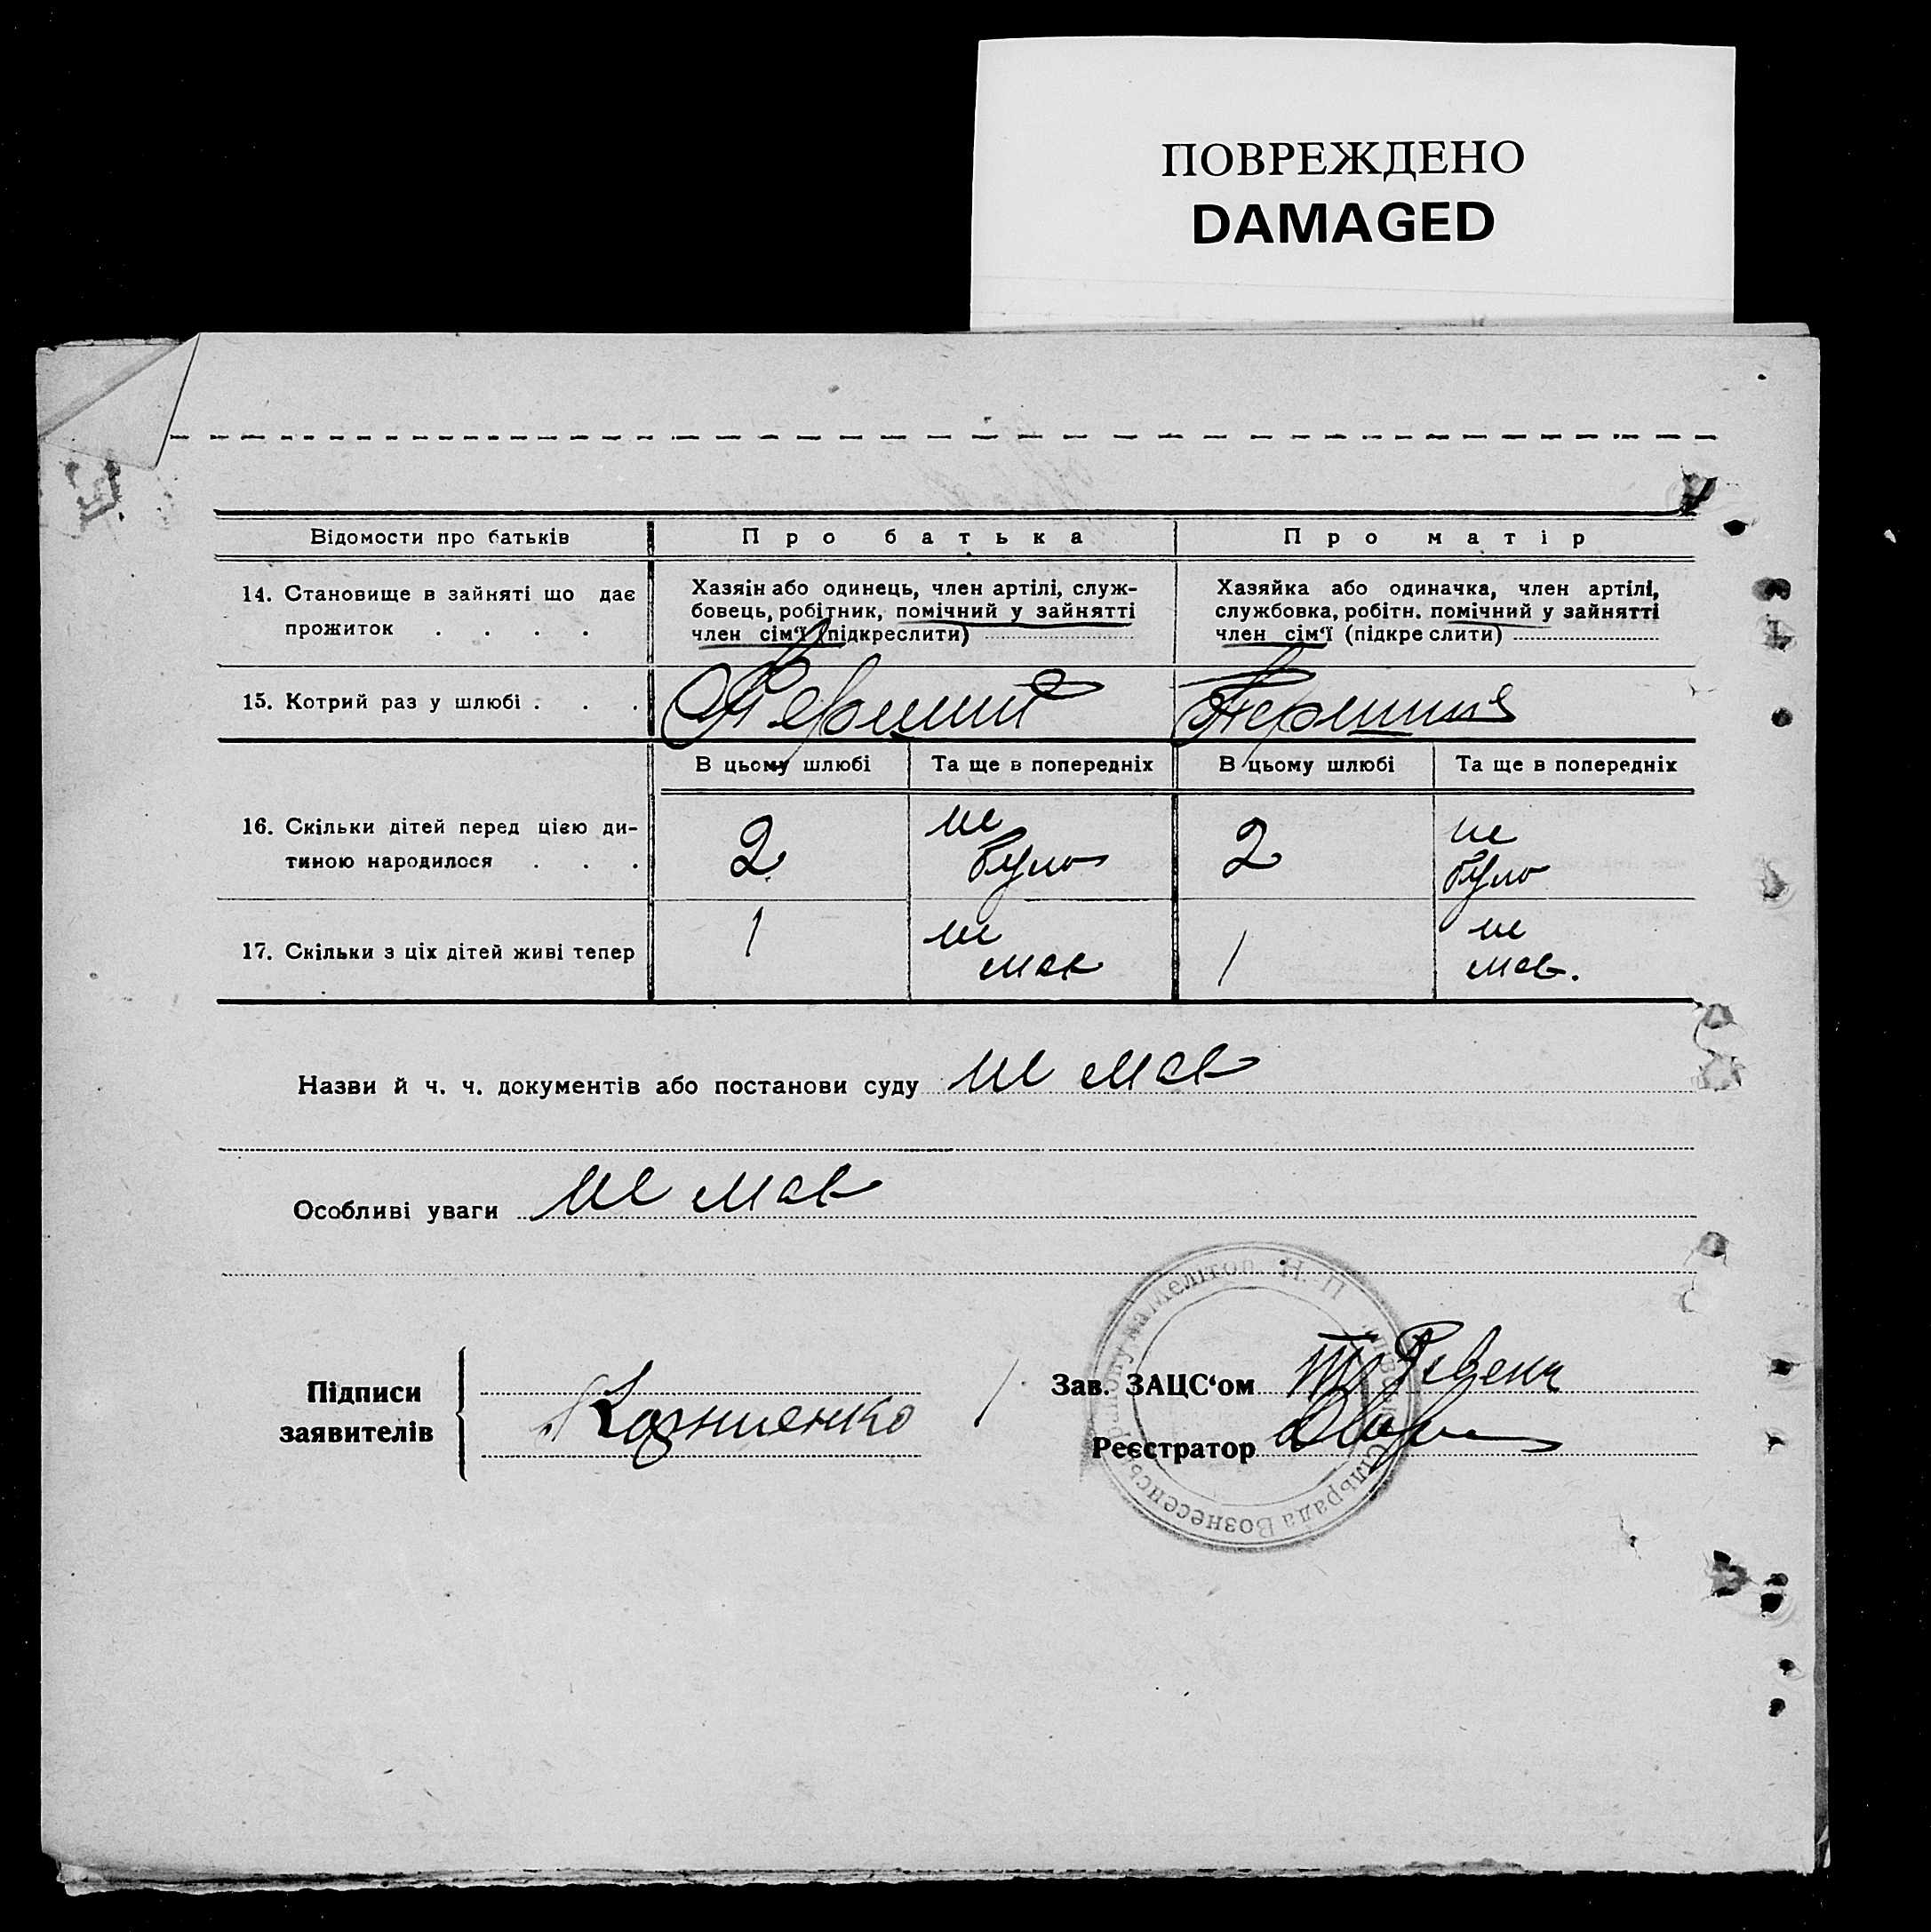 ПОВРЕЖДЕНО
DAMAGED
Відомости про батьків
Про батька
Про матір
14. Становище в зайняті що дає
прожиток . . . .
Хазяін або одинець, член артілі, служ-
бовець, робітник, помічний у зайнятті
член сім'ї (підкреслити)
Хазяйка або одиначка, член артілі,
службовка, робітн. помічний у зайнятті
член сім'ї (підкреслити)
15. Котрий раз у шлюбі . . .
Перший
В цьому шлюбі
Та ще в попередніх
В цьому шлюбі
Та ще в попередніх
16. Скільки дітей перед цією ди-
тиною народилося . . .
2
не
було
2
не
було
17. Скільки з ціх дітей живі тепер
1
не
мав
1
не
мав.
Назви й ч. ч. документів або постанови суду не мав
Особливі уваги не мав
Підписи
заявителів
Зав. ЗАЦС'ом
Реєстратор
Мелітоп.
Сільрада Вознесенськ